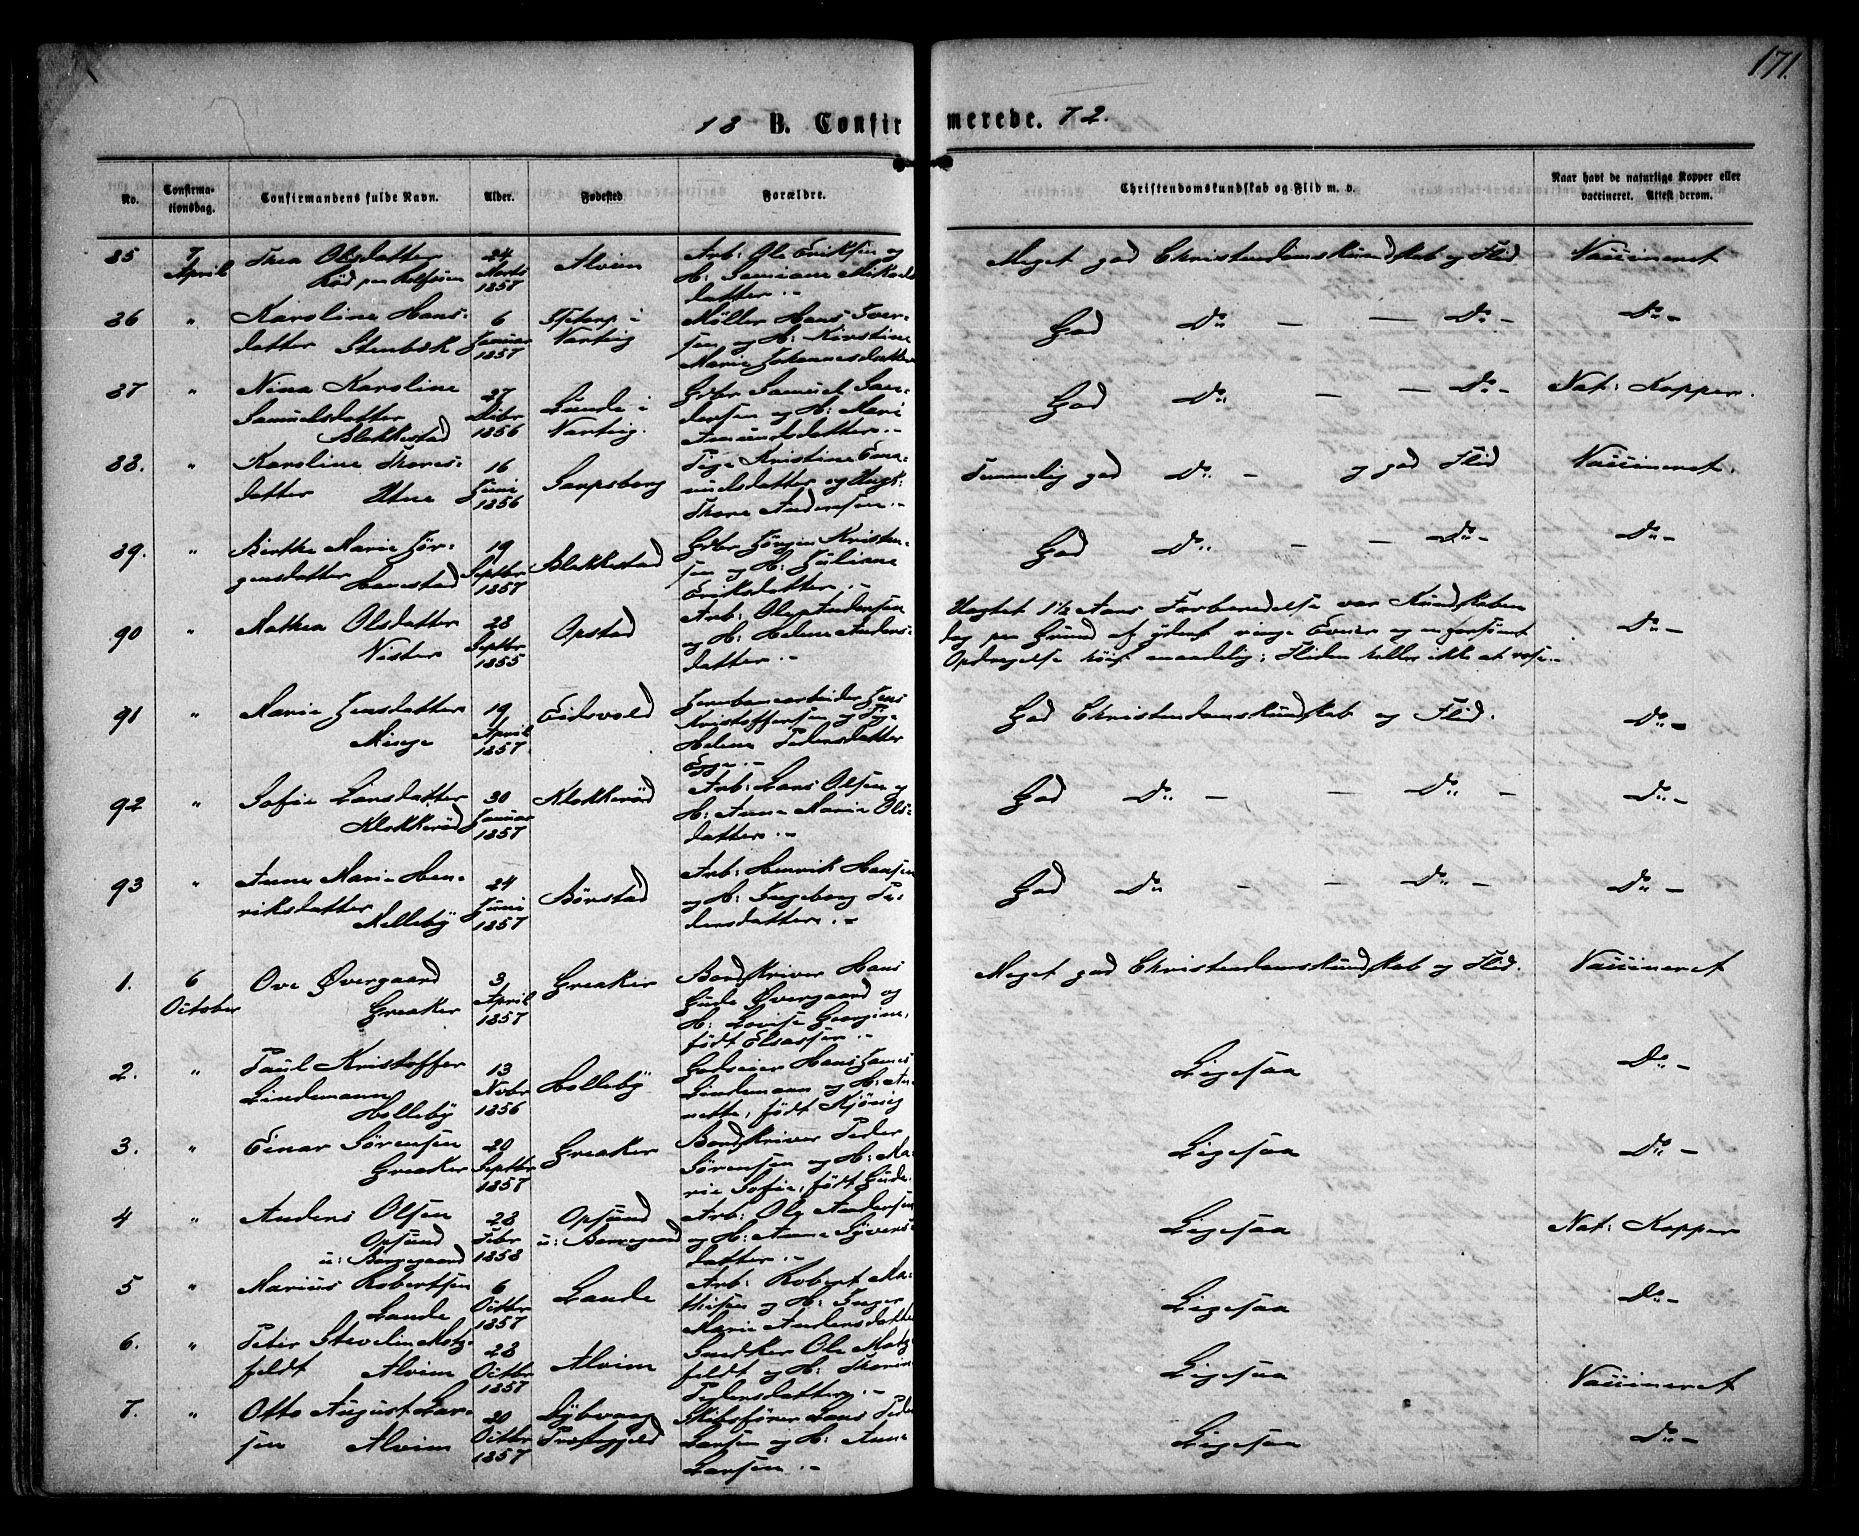 171.
18 B. Confirmerede. 72.
No.
Confirma-
tionsdag.
Confirmandens fulde Navn.
Alder.
Fødested
Forældre.
Christendomskundskab og Flid m. v.
Naar havt de naturlige Kopper eller
vaccineret. Attest derom.
85 7 April Thea Olsdatter 24 Marts 1857 Alvim Arb: Ole Eriksen og H: Mikaels datter.- Meget god Christendomskundskab og Flid Vaccineret
86 " Karoline Hans- datter Stenbæk 6 Januar 1857 i Varteig Møller Hans Iver- sen og H: Kirstine Marie Johannesdatter God Do - - Do - Do -
87 " Nina Karoline Samuelsdatter Blakkestad 27 Decbr 1856 Lunde i Varteig. Gdbr Samuel San- dersen og H: Mari Amundsdatter.- God Do - - Do - Nat: Kopper.
88. " Karoline Thores- datter Utne 16 Juni 1856 Sarpsborg Pige Kristine Ama- undsdatter og Ungk: Thore Andersen.- Temmelig god Do - og god Flid Vaccineret.
89. " Berthe Marie Jør- gensdatter Hanestad 19 Septbr 1857 Blakkestad Gdbr Jørgen Kristen- sen og H: Juliane Eriksdatter.- God Do - - Do - Do -
90 " Mathea Olsdatter Nister 28 Septbr 1855 Opstad Arb: Ole Andersen og H: Helene Anders- datter.- Uagtet 1½ Aars Forberedelse var Kundskaben dog paa Grund af yderst ringe Evner og en forsømt Opdragelse høist maadelig; Fliden heller ikke at rose.- Do -
91 " Marie Jensdatter Minge 19 April 1857 Eidsvold Jernbanearbeider Jens Kristoffersen og Pige Helene Pedersdatter Egge.- God Christendomskundskab og Flid. Do -
92 " Sofie Larsdatter Klokkerød 30 Januar 1857 Klokkerød Arb: Lars Olsen og H: Anne Marie Ols- datter.- God Do - - Do - Do -
93 " Anne Marie Hen- riksdatter Melleby 24 Juni 1857 Børstad Arb: Henrik Hansen og H: Ingeborg Pe- dersdatter.- God Do - - Do - Do -
1. 6 October Ove Øvergaard Greaker 3 April 1857 Greaker Bordskriver Hans Gude Øvergaard og H: Lovise Georgine, født Elsassen.- Meget god Christendomskundskab og Flid. Vaccineret
2. " Paul Kristoffer Lindemann Holleby 13 Novbr 1856 Holleby Godseier Hans James Lindemann og H: An- nette, født Kjønig Ligesaa Do -
3. " Einar Sørensen Greaker 20 Septbr 1857 Greaker Bordskriver Peder Sørensen og H: Ma- rie Sofie, født Gude. Ligesaa Do -
4 " Anders Olsen Opsund u: Borregaard 28 Febr 1858 Opsund u: Borregaard Arb: Ole Andersen og H: Anne Syvers- datter.- Ligesaa Nat: Kopper
5 " Marius Robertsen Lande 6 Octbr 1857 Lande Arb: Robert Ma- thisen og H: Inger Marie Andersdatter Ligesaa Do -
6. " Peter Stevelin Motz- feldt Alvim 28 Octbr 1857 Alvim Snedker Ole Motz- feldt og H: Thorine Pedersdatter.- Ligesaa Vaccineret
7. " Otto August Lar- sen Alvim 20 Octbr 1857 Dybvaag Præstegjeld Skibsfører Lars Peder Larsen og H: Anne Larsen.- Ligesaa Do -